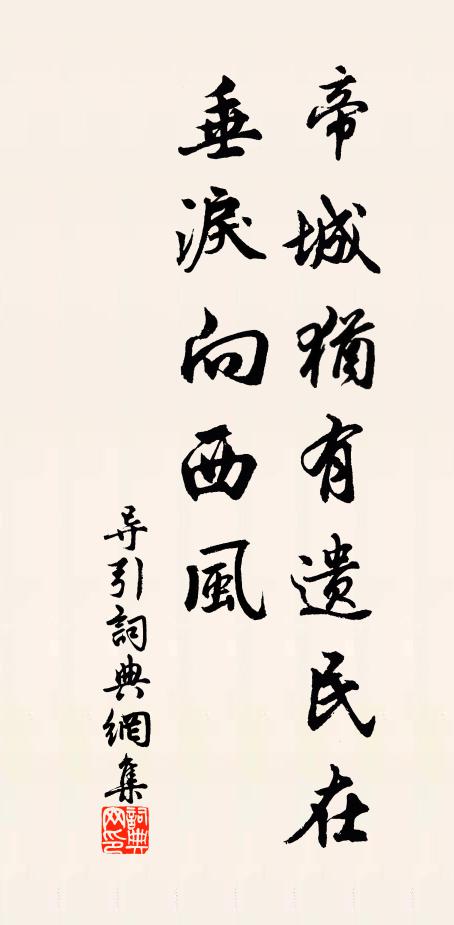 帝城猶有遺民在
垂淚向西風
导引詞典網集
詞典
网印